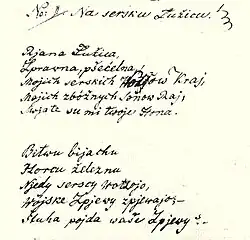 Na sersku Łužicu.
Rjana Łužica,
Zprawna, pšećelna,
Mojich serskich Kraj,
Mojich zbóžnych Sonow Raj,
Swjate su mi twoje Hona.
Bitwu bijachu
Horcu železnu
Njedy serscy Wótcojo,
Wójske Zpjewy zpjewajo;
pojda waše Zpjewy?